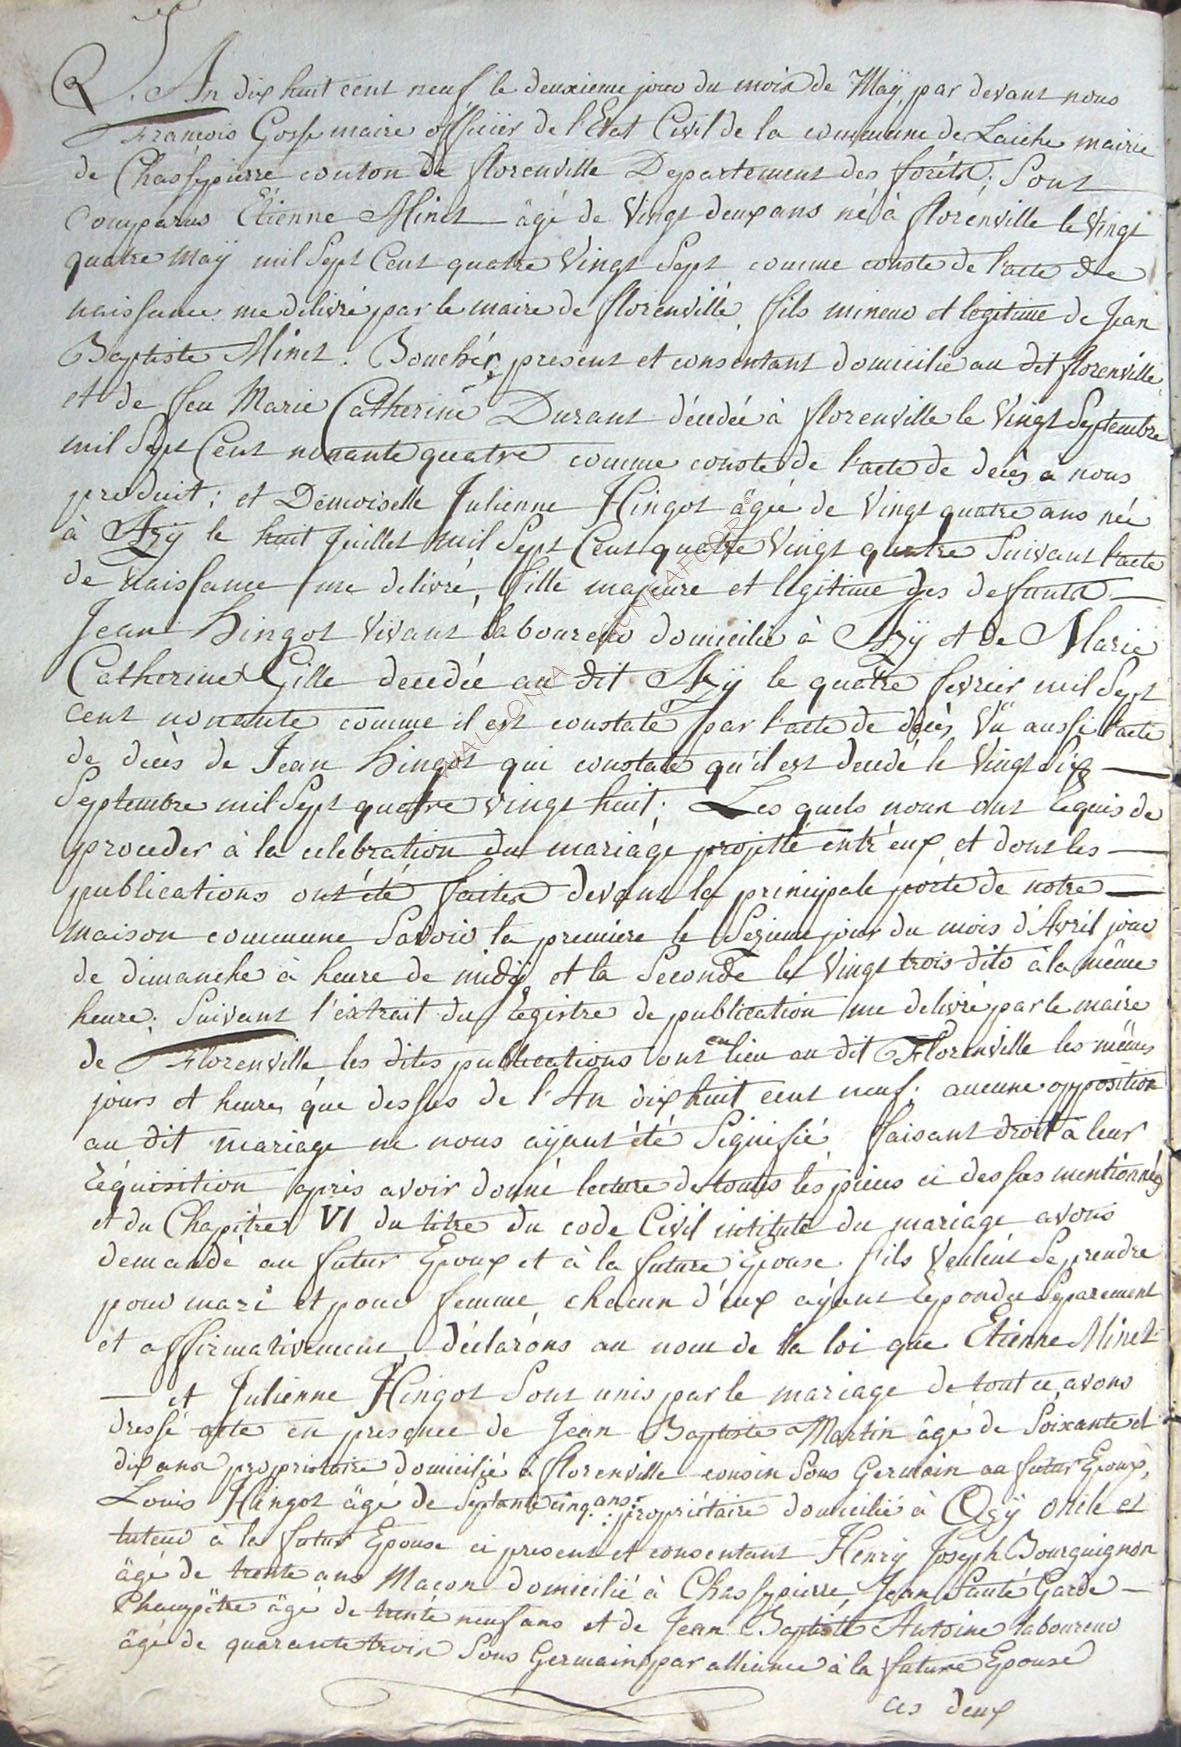 L'An dix huit cent neuf le deuxieme jour du mois de Maÿ par devant nous
François Gosse maire officiér de l'Etat Civil de la commune de Laiche mairie
de Chassepierre conton de florenville Departement des foréts; Sont
Comparus Etienne Minet âgé de Vingt deux ans né à florenville le Vingt
quatre Maÿ mil Sept Cent quatre Vingt Sept comme conste de l'acte de
naissance me delivré par le maire de florenville, fils mineur et legitime de Jean
Baptiste Minet. Bouchér, present et consentant domicilié au dit florenville,
et de feu Marie Catherine Durant décedée à florenville le Vingt Septembre
mil Sept Cent nonante quatre comme conste de l'acte de decès a nous
produit; et Demoiselle Julienne Hingot âgée de Vingt quatre ans née
à Azÿ le huit Juillet mil Sept Cent quatre Vingt quatre Suivant l'acte
de naissance me delivré, fille majeure et legitime des defunts
Jean Hingot vivant laboureur domicilié à Azÿ et de Marie
Catherine Gille decedée au dit Azÿ le quatre fevrier mil Sept
cent nonante comme il est constaté par l'acte de decès, Vû aussi l'acte
de decès de Jean hingot qui constate qu'il est decedé le Vingt Six
Septembre mil Sept quatre vingt huit; Les quels nous ont requis de
proceder à la celebration du mariage projetté entr'eux, et dont les
publications ont été faites devant la principale porte de notre
maison commune Savoir la premiere le Seizieme jour du mois d'Avril jour
de dimanche à heure de midÿ et la Seconde le Vingt trois dito à la même
heure; Suivant l'extrait du registre de publication me delivré par le maire
de Florenville les dites publications ont eu lieu au dit Florenville les mêmes
jours et heures que dessus de l'An dix huit cent neuf; aucune opposition
au dit mariage ne nous aÿant été Signifié, faisant droit a leur
réquisition après avoir donné lecture de toutes les pieces ci dessus mentionnés
et du Chapitre VI du titre du code Civil intitulé du mariage avons
demandé au futur Epoux et à la future Epouse s'ils Veulent Se prendre
pour mari et pour femme, chacun d'eux aÿant repondu Separement
et affirmativement, déclarons au nom de la loi que Etienne Minet
et Julienne Hingot Sont unis par le mariage de tout ce, avons
dressé acte en presence de Jean Baptiste Martin âgé de Soixante et
dix ans propriétaire domicilié à florenville cousin Sous Germain au futur Epoux,
Louis Hingot âgé de Septante cinq ans propriétaire domicilié à Azÿ oncle et
tuteur à la futur Epouse ci present et consentant Henry Joseph Bourguignon
âgé de trente ans Macon domicilié à Chassepierre, Jean Santé Garde
Champêtre âgé de trente neuf ans et de Jean Baptiste Antoine laboureur
âgé de quarante trois Sous Germain par alliance à la future Epouse
ces deux